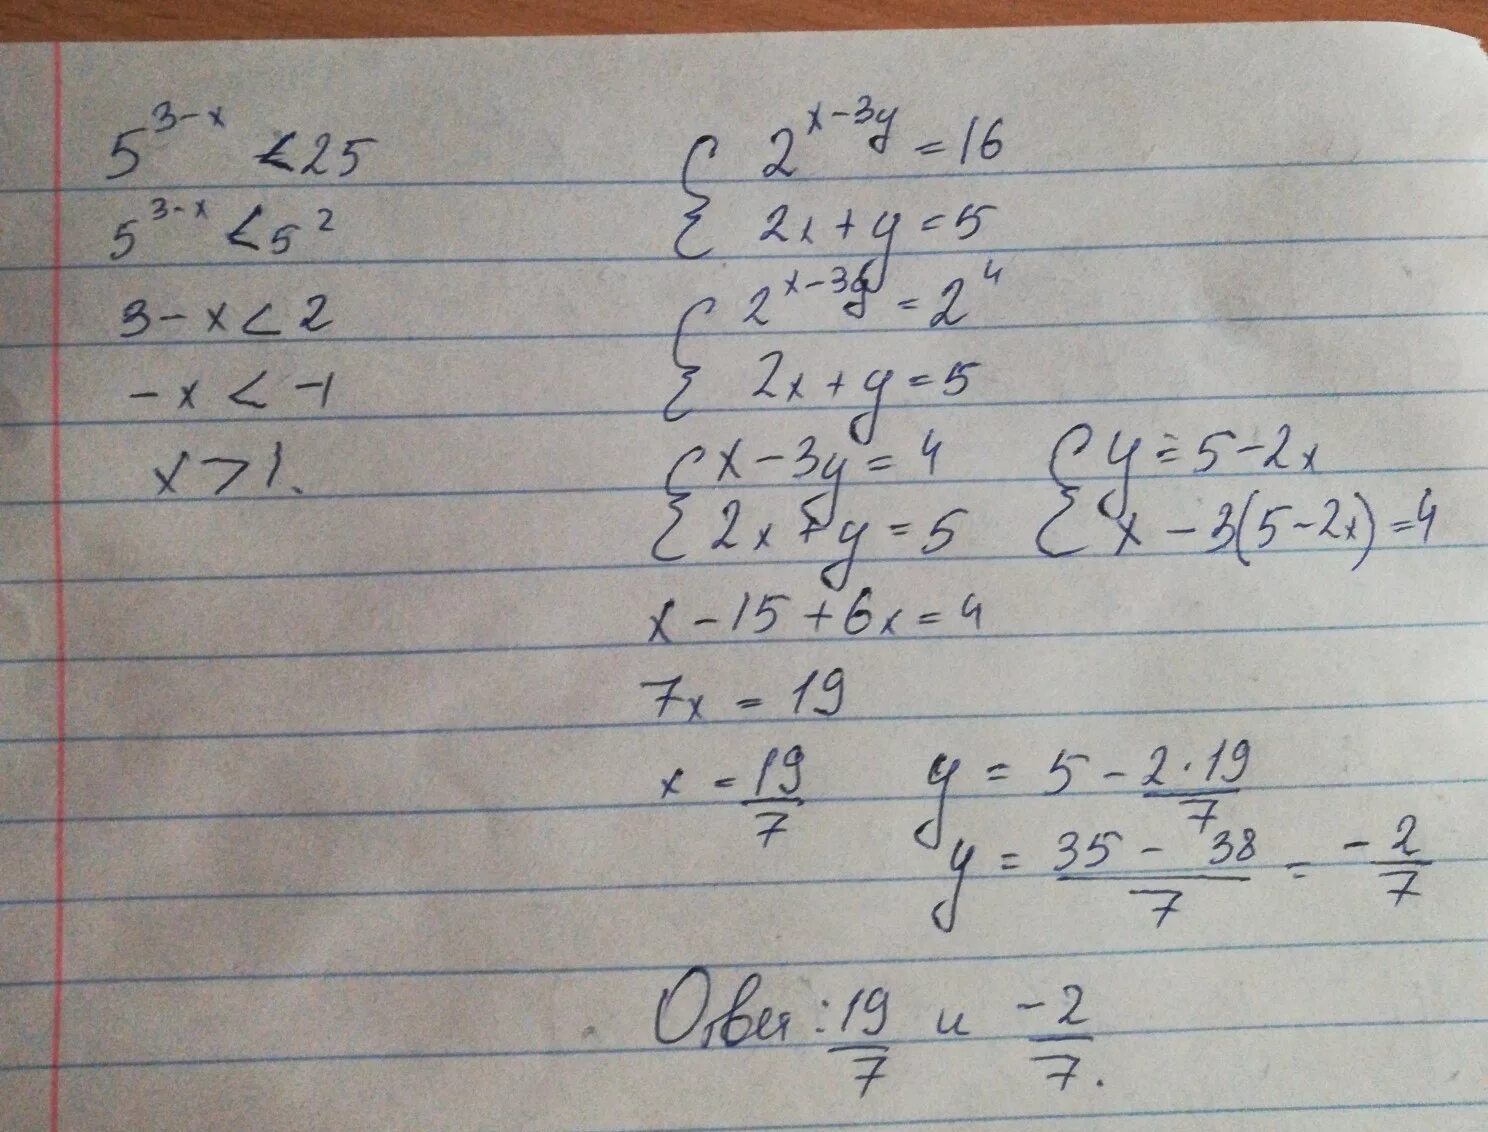 5^{3-x} < 25
5^{3-x} < 5^2
3 - x < 2
-x < -1
x > 1.
{ 2^{x-3y} = 16
{ 2x + y = 5
{ 2^{x-3y} = 2^4
{ 2x + y = 5
{ x - 3y = 4 { y = 5 - 2x
{ 2x + y = 5 { x - 3(5 - 2x) = 4
x - 15 + 6x = 4
7x = 19
x = 19/7 y = 5 - 2·19/7
y = (35 - 38)/7 = -2/7
Ответ: 19/7 и -2/7.